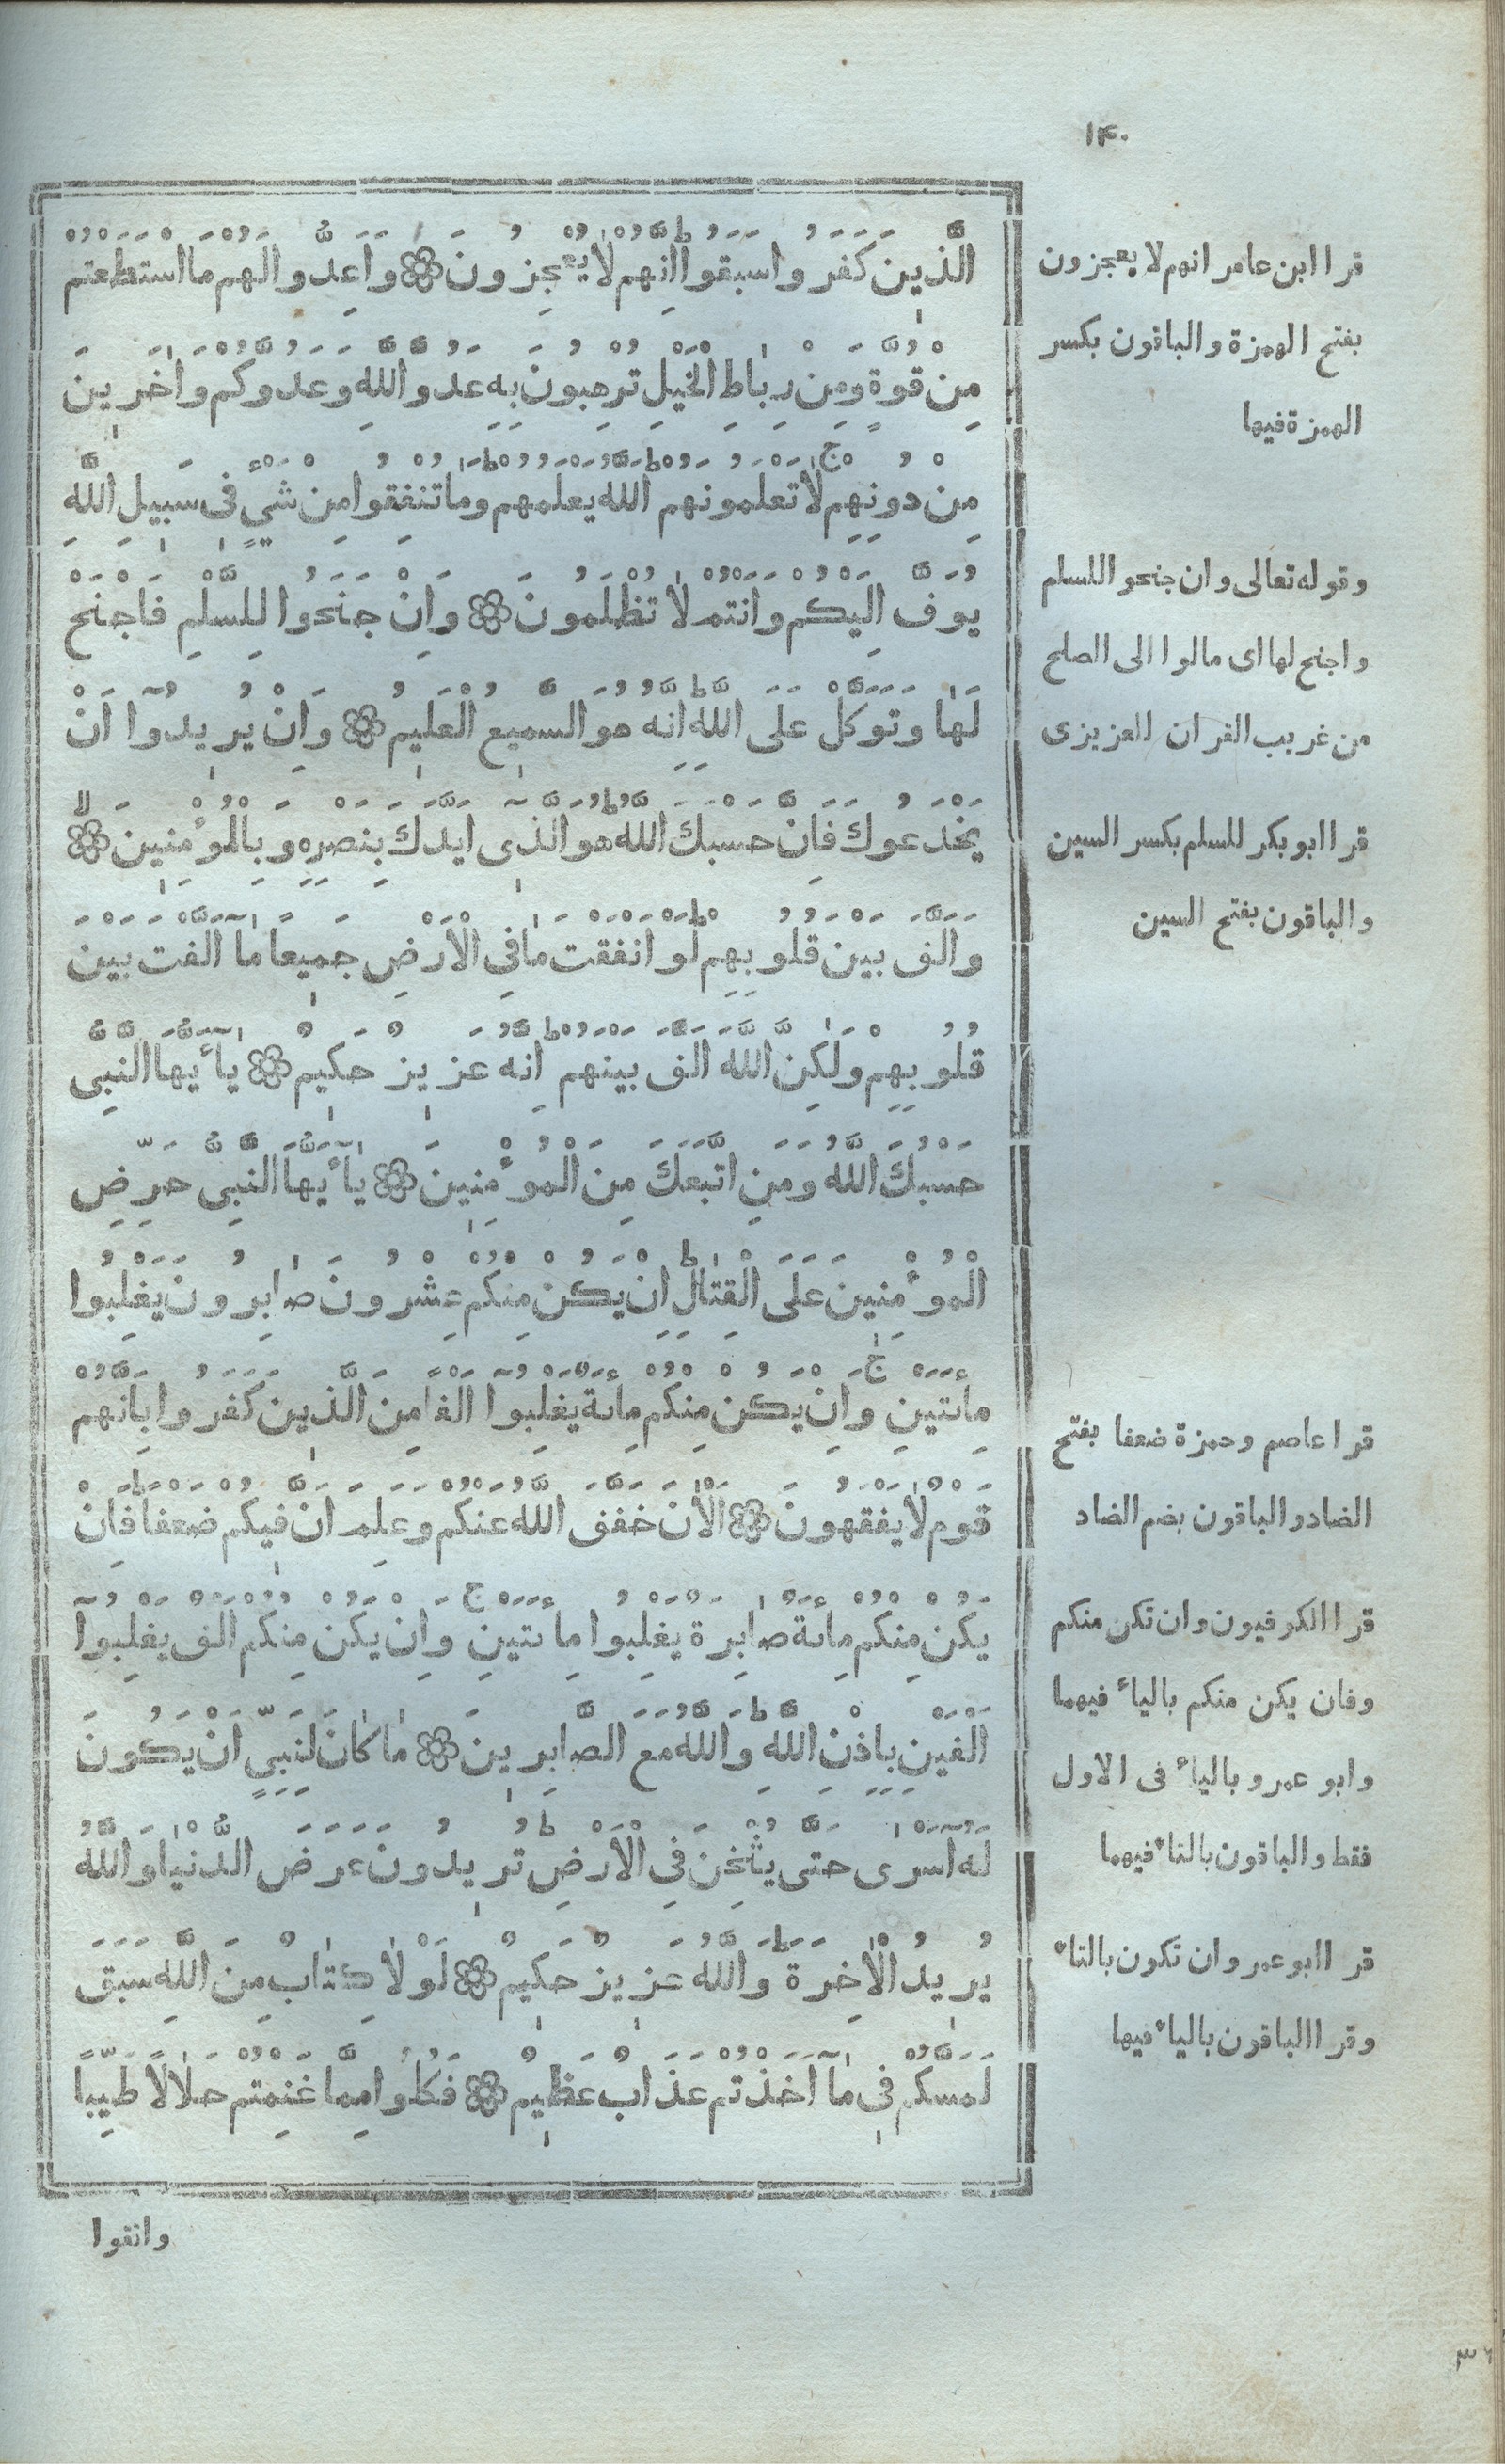 ١٤٠
الَّذِينَ كَفَرُوا سَبَقُوا اِنَّهُمْ لَا يُعْجِزُونَ ۝ وَاَعِدُّوا لَهُمْ مَا اسْتَطَعْتُمْ
مِنْ قُوَّةٍ وَمِنْ رِبَاطِ الْخَيْلِ تُرْهِبُونَ بِهِ عَدُوَّ اللَّهِ وَعَدُوَّكُمْ وَاٰخَرِينَ
مِنْ دُونِهِمْ ج لَا تَعْلَمُونَهُمْ ط اَللَّهُ يَعْلَمُهُمْ ط وَمَا تُنْفِقُوا مِنْ شَيْءٍ فِى سَبِيلِ اللَّهِ
يُوَفَّ اِلَيْكُمْ وَاَنْتُمْ لَا تُظْلَمُونَ ۝ وَاِنْ جَنَحُوا لِلسَّلْمِ فَاجْنَحْ
لَهَا وَتَوَكَّلْ عَلَى اللَّهِ ط اِنَّهُ هُوَ السَّمِيعُ الْعَلِيمُ ۝ وَاِنْ يُرِيدُوٓا اَنْ
يَخْدَعُوكَ فَاِنَّ حَسْبَكَ اللَّهُ ط هُوَ الَّذِىٓ اَيَّدَكَ بِنَصْرِهِ وَبِالْمُؤْمِنِينَ لا ۝
وَاَلَّفَ بَيْنَ قُلُوبِهِمْ ط لَوْ اَنْفَقْتَ مَا فِى الْاَرْضِ جَمِيعًا مَآ اَلَّفْتَ بَيْنَ
قُلُوبِهِمْ وَلٰكِنَّ اللَّهَ اَلَّفَ بَيْنَهُمْ ط اِنَّهُ عَزِيزٌ حَكِيمٌ ۝ يَآ اَيُّهَا النَّبِىُّ
حَسْبُكَ اللَّهُ وَمَنِ اتَّبَعَكَ مِنَ الْمُؤْمِنِينَ ۝ يَآ اَيُّهَا النَّبِىُّ حَرِّضِ
الْمُؤْمِنِينَ عَلَى الْقِتَالِ ط اِنْ يَكُنْ مِنْكُمْ عِشْرُونَ صَابِرُونَ يَغْلِبُوا
مِائَتَيْنِ ج وَاِنْ يَكُنْ مِنْكُمْ مِائَةٌ يَغْلِبُوٓا اَلْفًا مِنَ الَّذِينَ كَفَرُوا بِاَنَّهُمْ
قَوْمٌ لَا يَفْقَهُونَ ۝ اَلْاٰنَ خَفَّفَ اللَّهُ عَنْكُمْ وَعَلِمَ اَنَّ فِيكُمْ ضَعْفًا ط فَاِنْ
يَكُنْ مِنْكُمْ مِائَةٌ صَابِرَةٌ يَغْلِبُوا مِائَتَيْنِ ج وَاِنْ يَكُنْ مِنْكُمْ اَلْفٌ يَغْلِبُوٓا
اَلْفَيْنِ بِاِذْنِ اللَّهِ ط وَاللَّهُ مَعَ الصَّابِرِينَ ۝ مَا كَانَ لِنَبِيٍّ اَنْ يَكُونَ
لَهُٓ اَسْرٰى حَتّٰى يُثْخِنَ فِى الْاَرْضِ ط تُرِيدُونَ عَرَضَ الدُّنْيَا وَاللَّهُ
يُرِيدُ الْاٰخِرَةَ ط وَاللَّهُ عَزِيزٌ حَكِيمٌ ۝ لَوْلَا كِتَابٌ مِنَ اللَّهِ سَبَقَ
لَمَسَّكُمْ فِى مَآ اَخَذْتُمْ عَذَابٌ عَظِيمٌ ۝ فَكُلُوا مِمَّا غَنِمْتُمْ حَلَالًا طَيِّبًا
واتقوا
قرا ابن عامر انهم لا يعجزون
بفتح الهمزة والباقون بكسر
الهمزة فيها
وقوله تعالى وان جنحوا للسلم
واجنح لها اى مالوا الى الصلح
من غريب القران للعزيزى
قرا ابو بكر للسلم بكسر السين
والباقون بفتح السين
قرا عاصم وحمزة ضعفا بفتح
الضاد والباقون بضم الضاد
قرا الكوفيون وان تكن منكم
وفان يكن منكم بالياء فيهما
وابو عمرو بالياء فى الاول
فقط والباقون بالتاء فيهما
قرا ابو عمرو ان تكون بالتاء
وقرا الباقون بالياء فيها